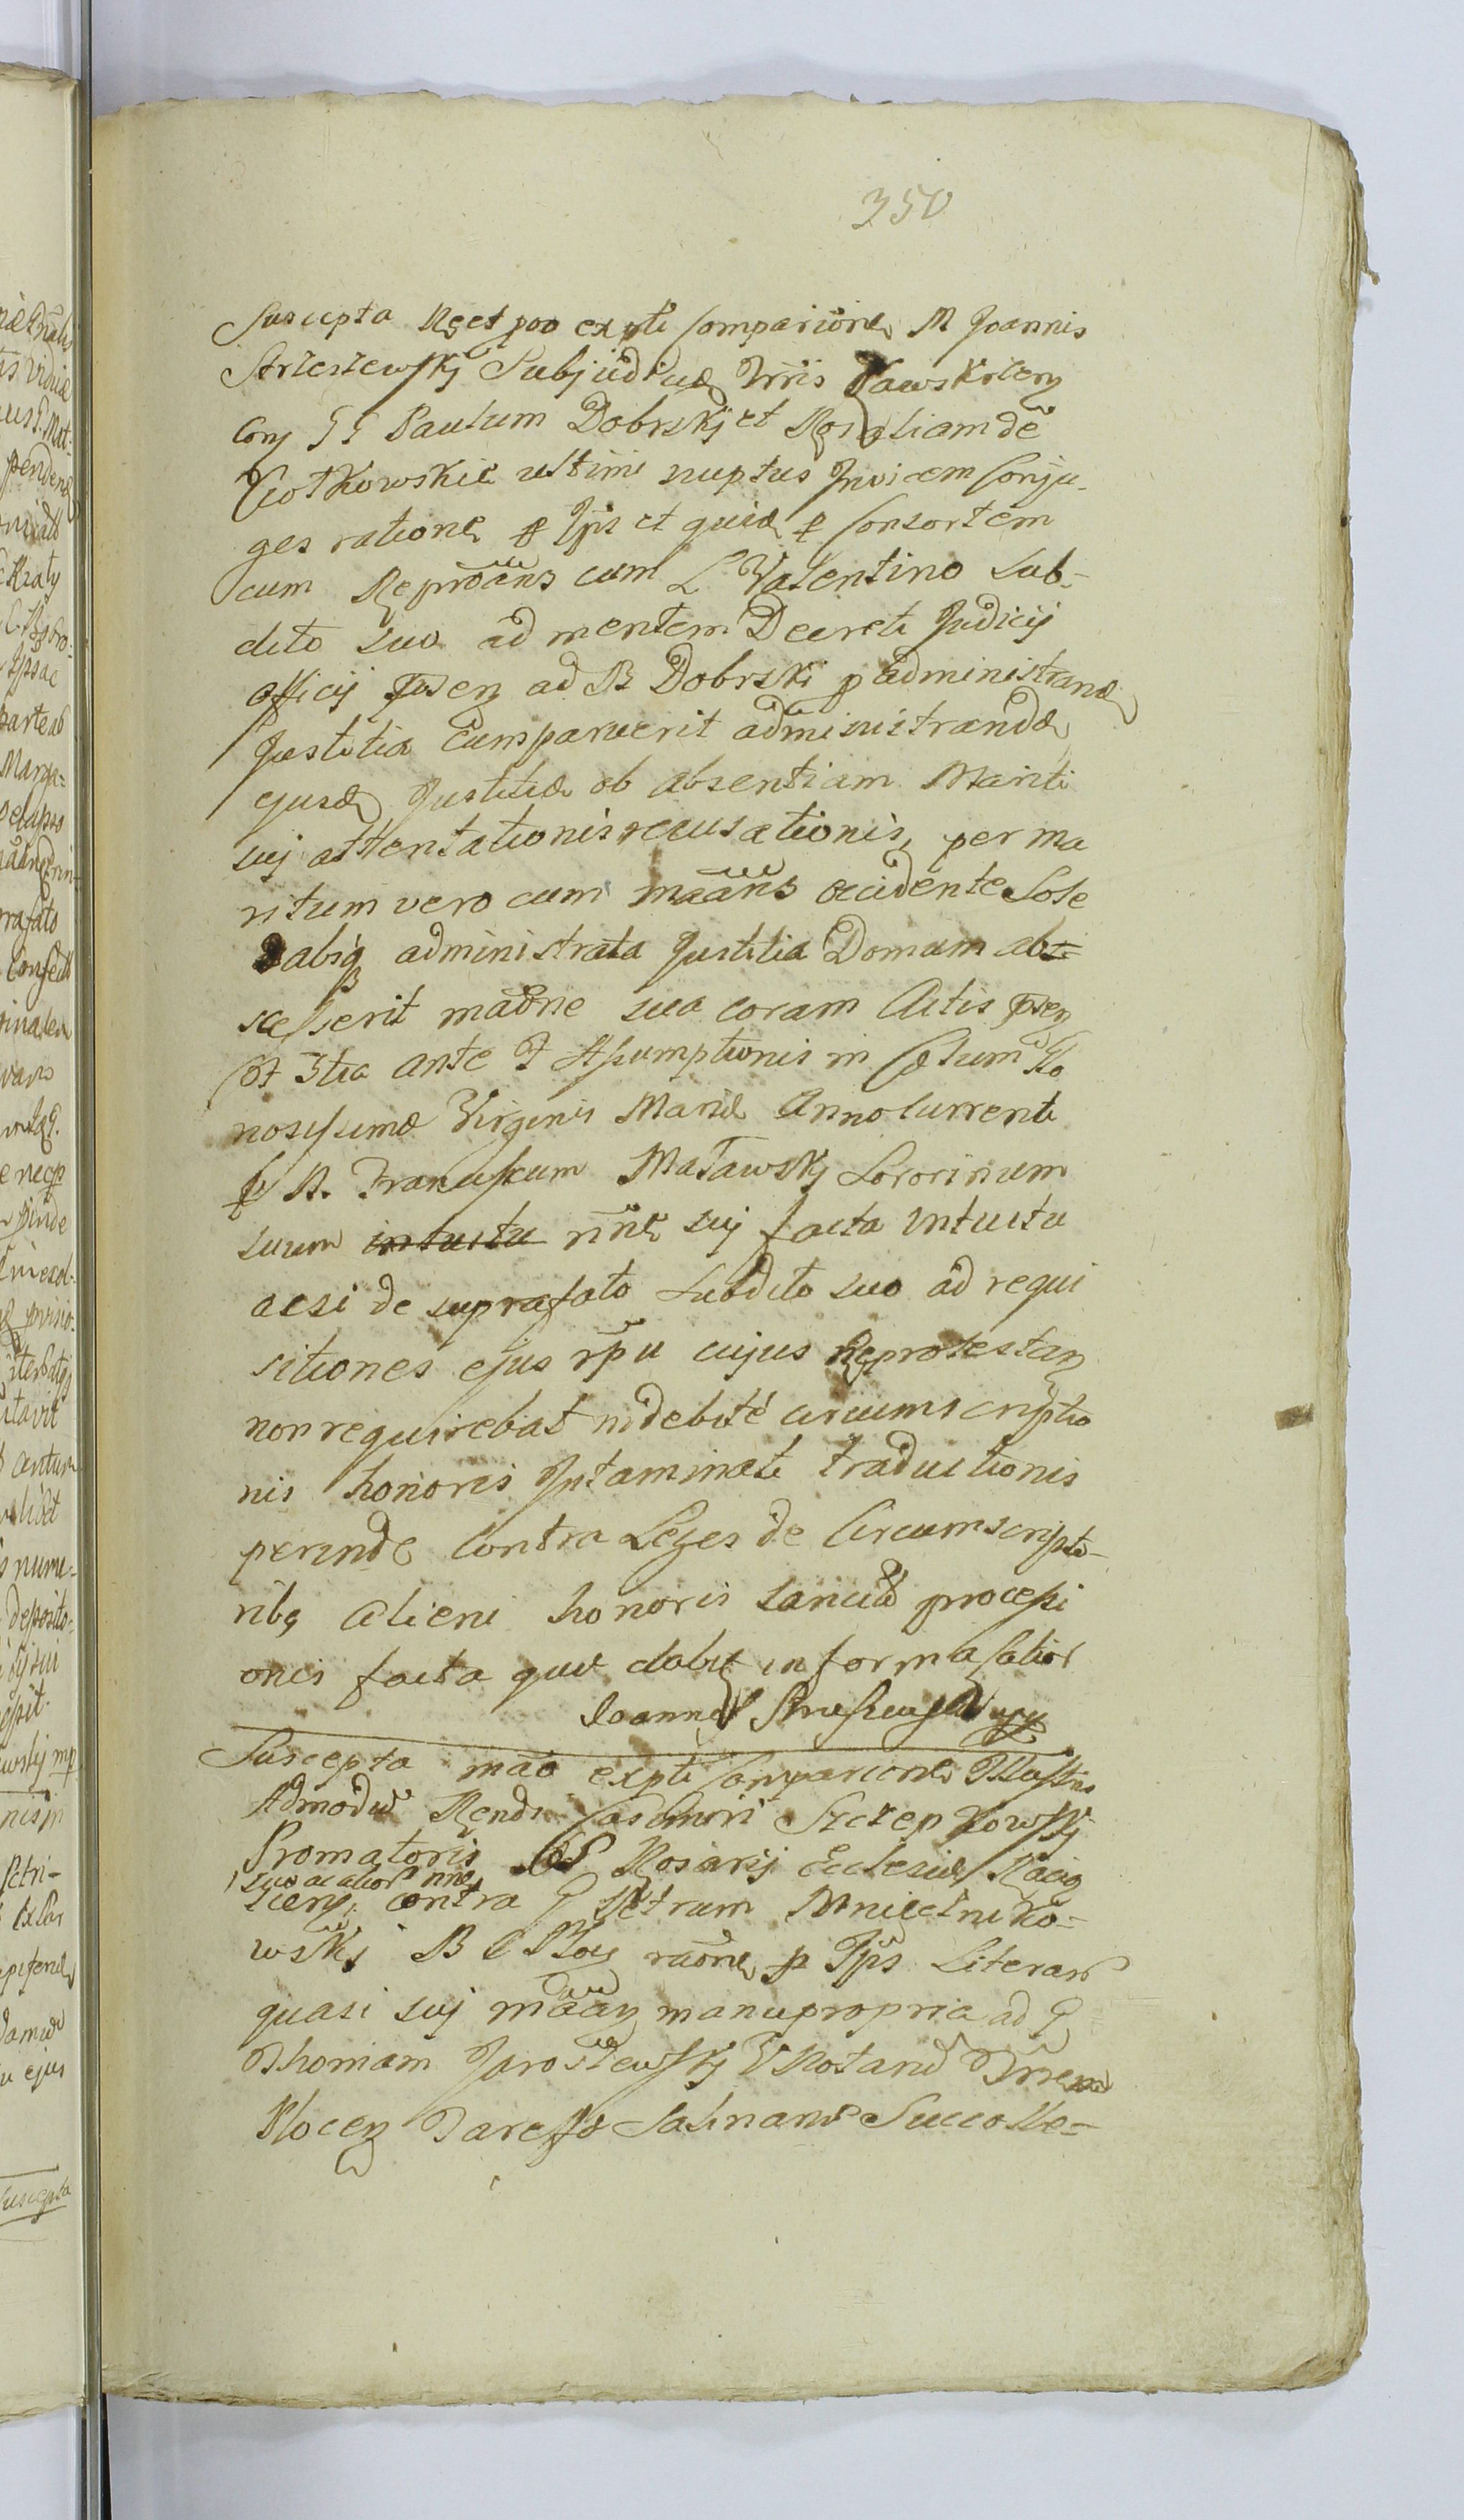 350
Suscepta Rqst poo expti Comparicione M Joannis
Strzeszewskj Subjudicis Trris Zawskrzen
Con GG Paulum Dobrskj et Rosaliam de
Ciotkowskie ultimi nuptus Invicem Conju-
ges ratione p Ips et quide p Consortem
cum Reproans cum L Valentino sub-
dito suo ad mentem Decreti Judicij
officij psen ad B Dobrski p administrand
Justitia Comparuerit administranda
ejusd Justitia ob absentiam Mariti
suj attentationis recusationis, per ma
ritum vero cum maans occidente Sole
absq administrata Justitia Domum abs
scesserit maone sua coram Actis psen
ante F Assumptionis in Celum Glo
riosissima Virginis Maria Anno Currenti
p N. Franciscum Maławskj Sororinum
suum intuitu nne suj facta intuitu
acsi de suprafato Subdito suo ad requi
sitiones ejus rpu cujus Reprotestan
non requirebat indebite circumscriptio
nis honoris Intaminati traductionis
perinde Contra Leges de Circumscripto-
ribq alieni honoris sancitas processi
onis facta que dabit in forma latior
Joannes Strzeszewski mp
Suscepta mao expti Comparicione Illustris
Admodu Rendi Casimiri Szczepkowskj
Promotoris SS Rosarij Ecclesia Raciąz
suo ac alior nne
scen, contra G Petrum Mniechniko-
wskj B C Ploc raone p Ips Literar
quasi suj maan manu propria ad G
Thomam Jaroszewskj V Notariu Trren
Plocen Daresso Salinarum Succolle-